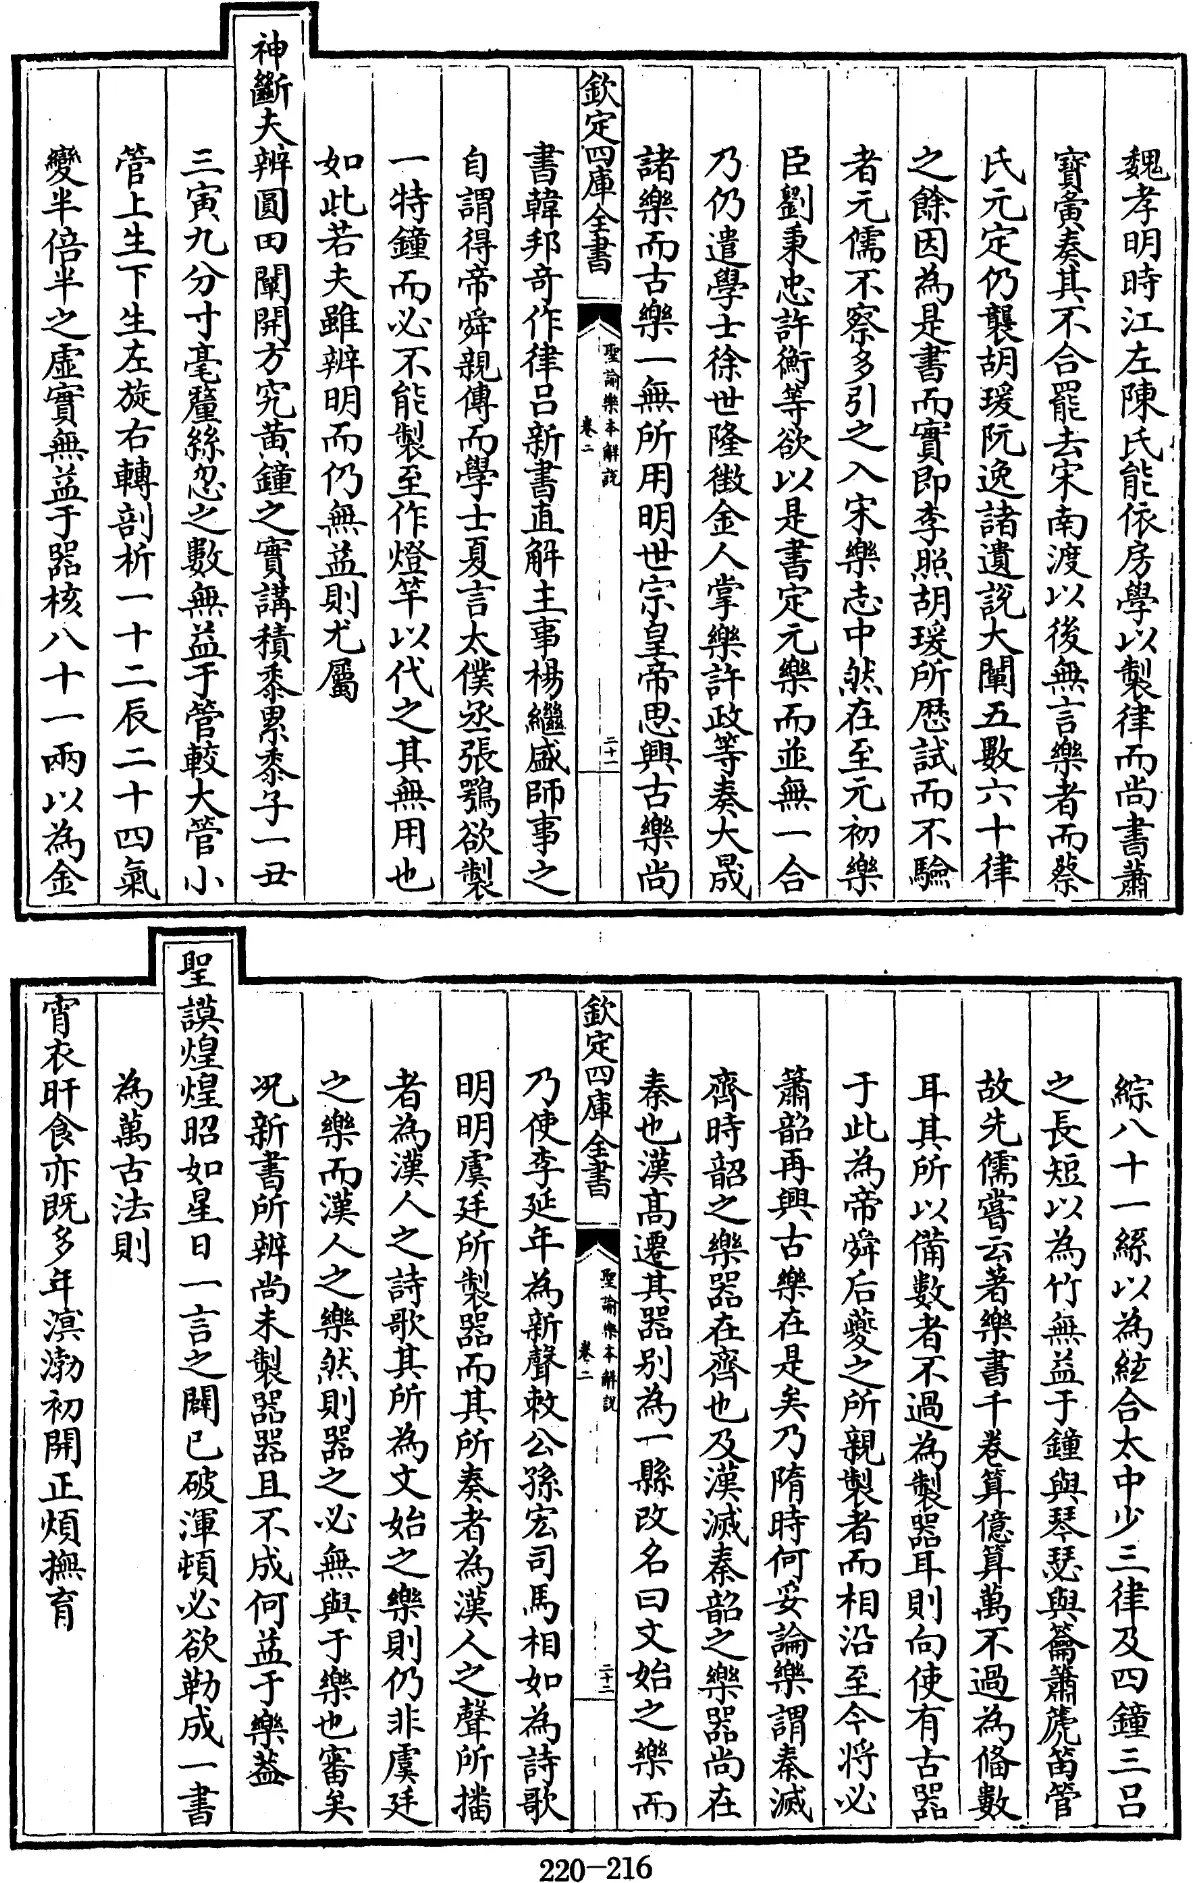 魏孝明時江左陳氏能依房學以製律而尚書蕭
寶夤奏其不合罷去宋南渡以後無言樂者而蔡
氏元定仍襲胡瑗阮逸諸遺説大闡五數六十律
之餘因為是書而實即李照胡瑗所歴試而不驗
者元儒不察多引之入宋樂志中然在至元初樂
臣劉秉忠許衡等欲以是書定元樂而並無一合
乃仍遣學士徐世隆徴金人掌樂許政等奏大晟
諸樂而古樂一無所用明世宗皇帝思興古樂尚
欽定四庫全書
聖諭樂本解説
卷二
二十一
書韓邦奇作律吕新書直解主事楊繼盛師事之
自謂得帝舜親傳而學士夏言太僕丞張鶚欲製
一特鐘而必不能製至作燈竿以代之其無用也
如此若夫雖辨明而仍無益則尤屬
神斷夫辨圓田闡開方究黄鐘之實講積黍累黍子一丑
三寅九分寸毫釐絲忽之數無益于管較大管小
管上生下生左旋右轉剖析一十二辰二十四氣
變半倍半之虚實無益于器核八十一兩以為金
綜八十一絲以為絃合太中少三律及四鐘三吕
之長短以為竹無益于鐘與琴瑟與籥簫箎笛管
故先儒嘗云著樂書千卷算億算萬不過為備數
耳其所以備數者不過為製器耳則向使有古器
于此為帝舜后夔之所親製者而相沿至今將必
簫韶再興古樂在是矣乃隋時何妥論樂謂秦滅
齊時韶之樂器在齊也及漢滅秦韶之樂器尚在
秦也漢髙遷其器别為一縣改名曰文始之樂而
欽定四庫全書
聖諭樂本解説
卷二
二十二
乃使李延年為新聲敕公孫宏司馬相如為詩歌
明明虞廷所製器而其所奏者為漢人之聲所播
者為漢人之詩歌其所為文始之樂則仍非虞廷
之樂而漢人之樂然則器之必無與于樂也審矣
况新書所辨尚未製器器且不成何益于樂葢
聖謨煌煌昭如星日一言之闢已破渾頓必欲勒成一書
為萬古法則
宵衣旰食亦既多年溟渤初開正煩撫育
220-216